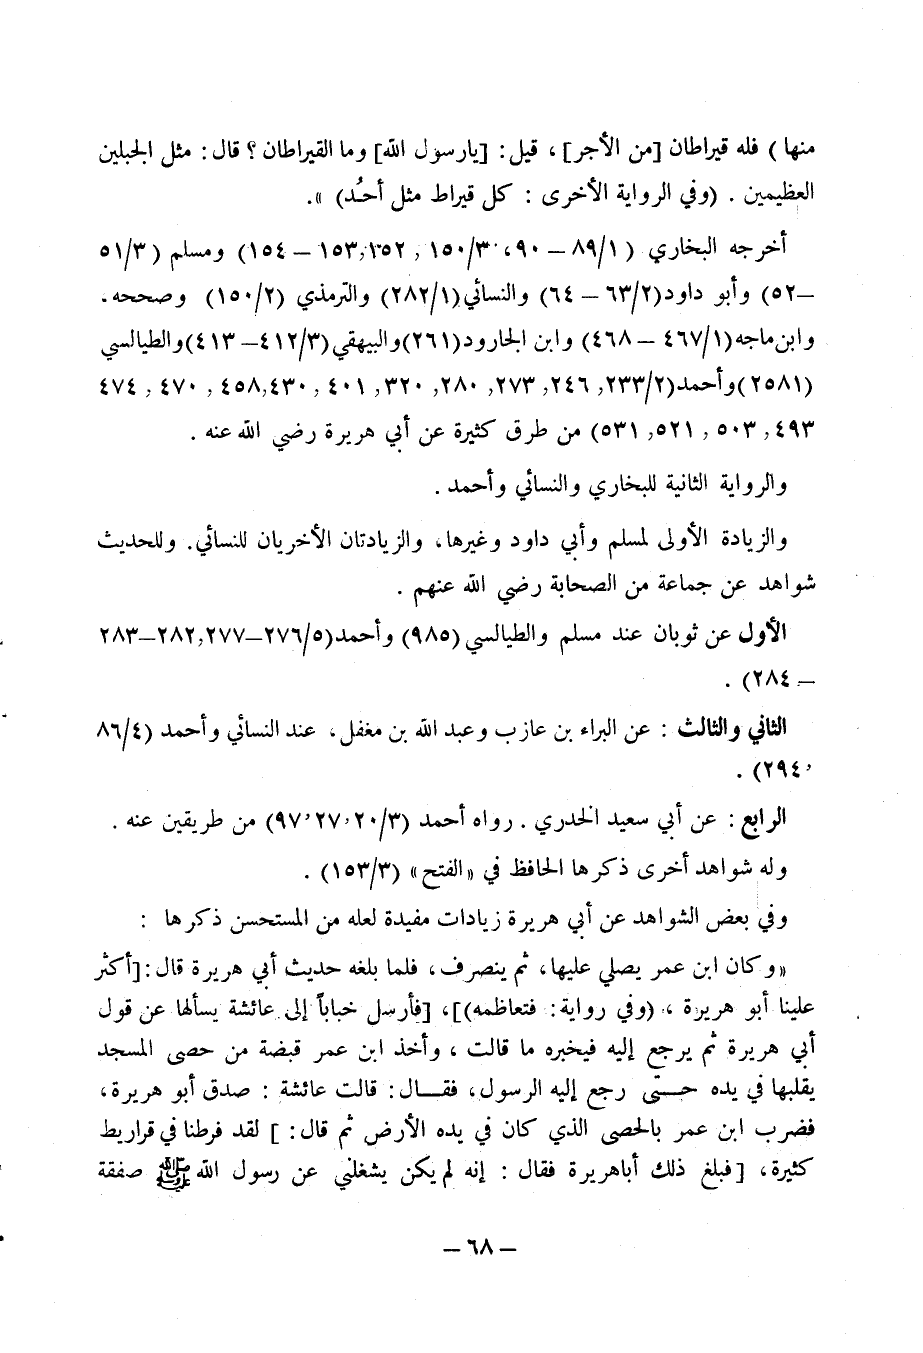 منها) فله قيراطان [من الأجر]، قيل: [يارسول الله] وما القيراطان؟ قال: مثل الجبلين
العظيمين. (وفي الرواية الأخرى: كل قيراط مثل أحُد)».
أخرجه البخاري (١/٨٩ – ٩٠، ٣/١٥٠, ١٥٢,١٥٣ – ١٥٤) ومسلم (٣/٥١
–٥٢) وأبو داود(٢/٦٣ – ٦٤) والنسائي(١/٢٨٢) والترمذي (٢/١٥٠) وصححه.
وابن ماجه(١/٤٦٧ – ٤٦٨) وابن الجارود(٢٦١)والبيهقي(٣/٤١٢–٤١٣)والطيالسي
(٢٥٨١)وأحمد(٢/٢٣٣, ٢٤٦, ٢٧٣, ٢٨٠, ٣٢٠, ٤٠١, ٤٥٨,٤٣٠, ٤٧٠, ٤٧٤
٤٩٣, ٥٠٣, ٥٢١, ٥٣١) من طرق كثيرة عن أبي هريرة رضي الله عنه.
والرواية الثانية للبخاري والنسائي وأحمد.
والزيادة الأولى لمسلم وأبي داود وغيرها، والزيادتان الأخريان للنسائي. وللحديث
شواهد عن جماعة من الصحابة رضي الله عنهم.
الأول عن ثوبان عند مسلم والطيالسي (٩٨٥) وأحمد(٥/٢٧٦–٢٨٢,٢٧٧–٢٨٣
– ٢٨٤).
الثاني والثالث: عن البراء بن عازب وعبد الله بن مغفل، عند النسائي وأحمد (٤/٨٦
, ٢٩٤).
الرابع: عن أبي سعيد الخدري. رواه أحمد (٣/٢٠, ٢٧, ٩٧) من طريقين عنه.
وله شواهد أخرى ذكرها الحافظ في «الفتح» (٣/١٥٣).
وفي بعض الشواهد عن أبي هريرة زيادات مفيدة لعله من المستحسن ذكرها:
«وكان ابن عمر يصلي عليها، ثم ينصرف، فلما بلغه حديث أبي هريرة قال: [أكثر
علينا أبو هريرة، (وفي رواية: فتعاظمه)]، [فأرسل خباباً إلى عائشة يسألها عن قول
أبي هريرة ثم يرجع إليه فيخبره ما قالت، وأخذ ابن عمر قبضة من حصى المسجد
يقلبها في يده حتى رجع إليه الرسول، فقال: قالت عائشة: صدق أبو هريرة،
فضرب ابن عمر بالحصى الذي كان في يده الأرض ثم قال: ] لقد فرطنا في قراريط
كثيرة، [فبلغ ذلك أباهريرة فقال: إنه لم يكن يشغلني عن رسول الله ﷺ صفقة
– ٦٨ –